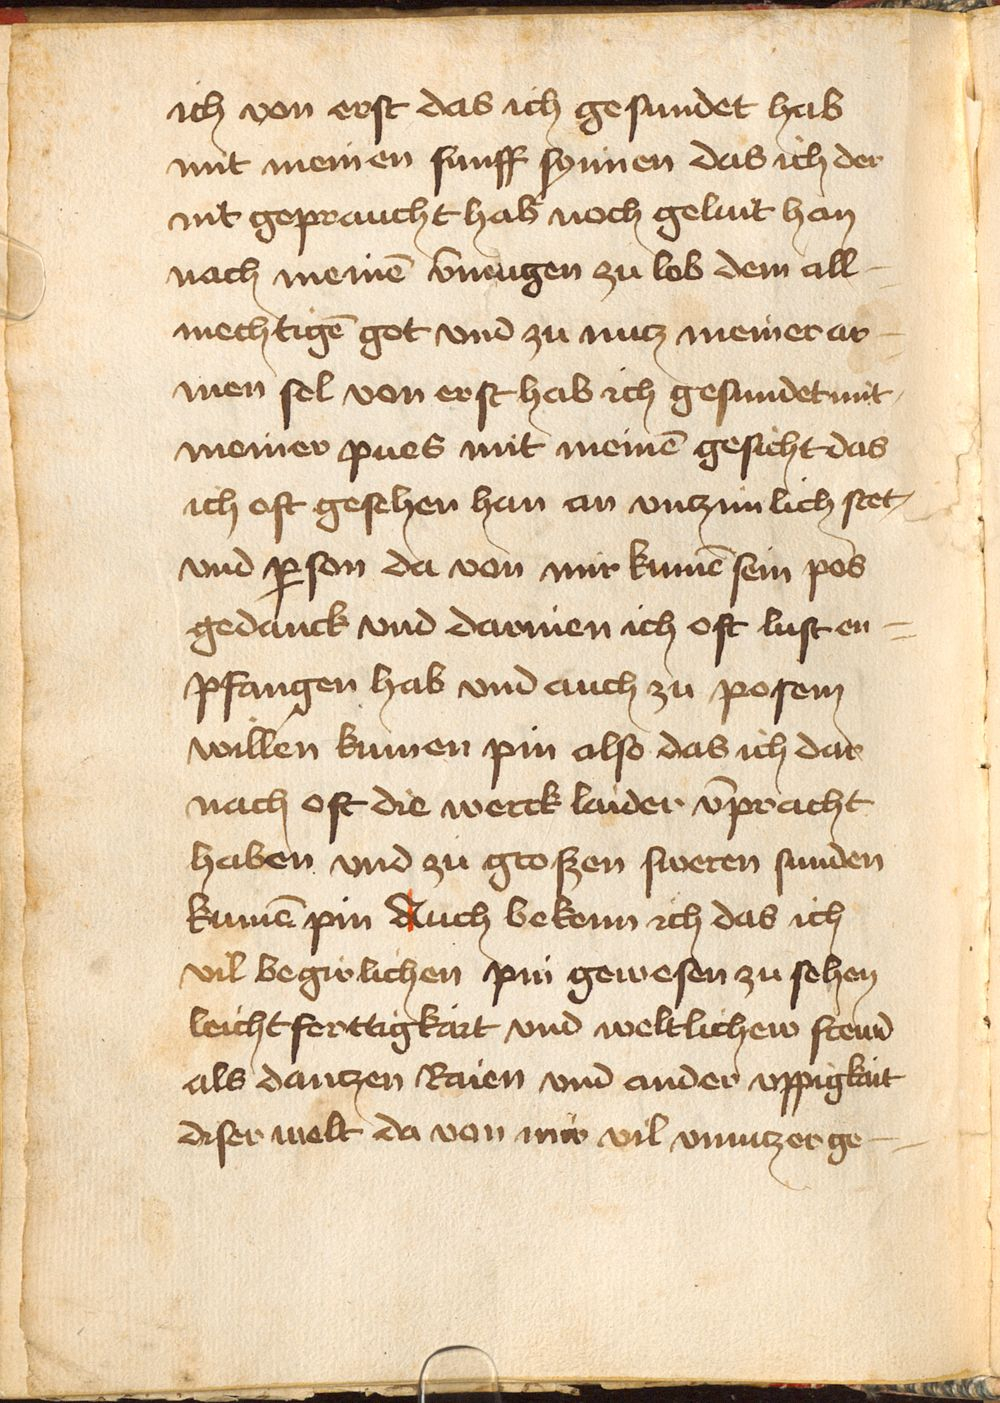 ich von erst das ich gesundet hab
mit meinen funff synnen das ich der
nit gepraucht hab noch geluit han
nach meinē v̄mugen zu lob dem all-
mechtigē got vnd zu nutz meiner ar-
men sel von erst hab ich gesundet mit
meiner pues mit meinē gesicht das
ich oft gesehen han an vntzimlich stet
vnd ꝑson da von mir kumē sein pos
gedanck vnd darinen ich oft lust en=
pfangen hab vnd auch zu posem
willen kumen pin also das ich dar
nach oft die werck laider v̄pracht
haben vnd zu groszen sweren sunden
kumē pin Auch bekenn ich das ich
vil begirlichen pin gewesen zu sehen
leichtferttigkait vnd weltlichew frewd
als dantzen Raien vnd ander vppigkait
diser welt da von mir vil vnnutzer ge-